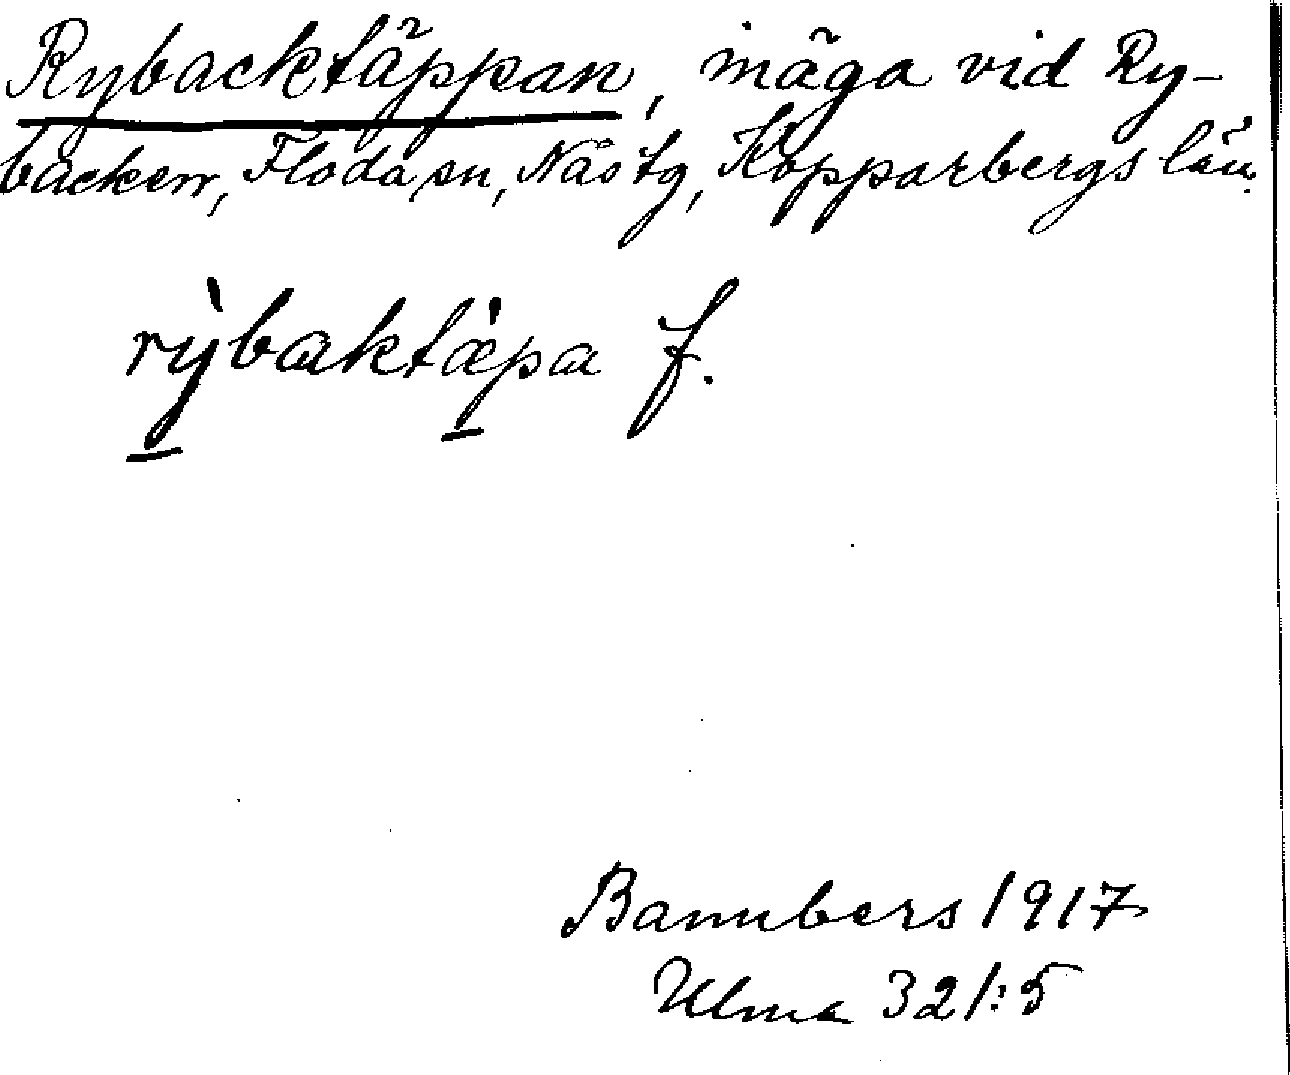 Rybacktäppan, inäga vid Ry-
backen, Floda sn, Nås tg, Kopparbergs län.
rỳbaktæ̀pa f.
Bannbers 1917
Ulma 321:5